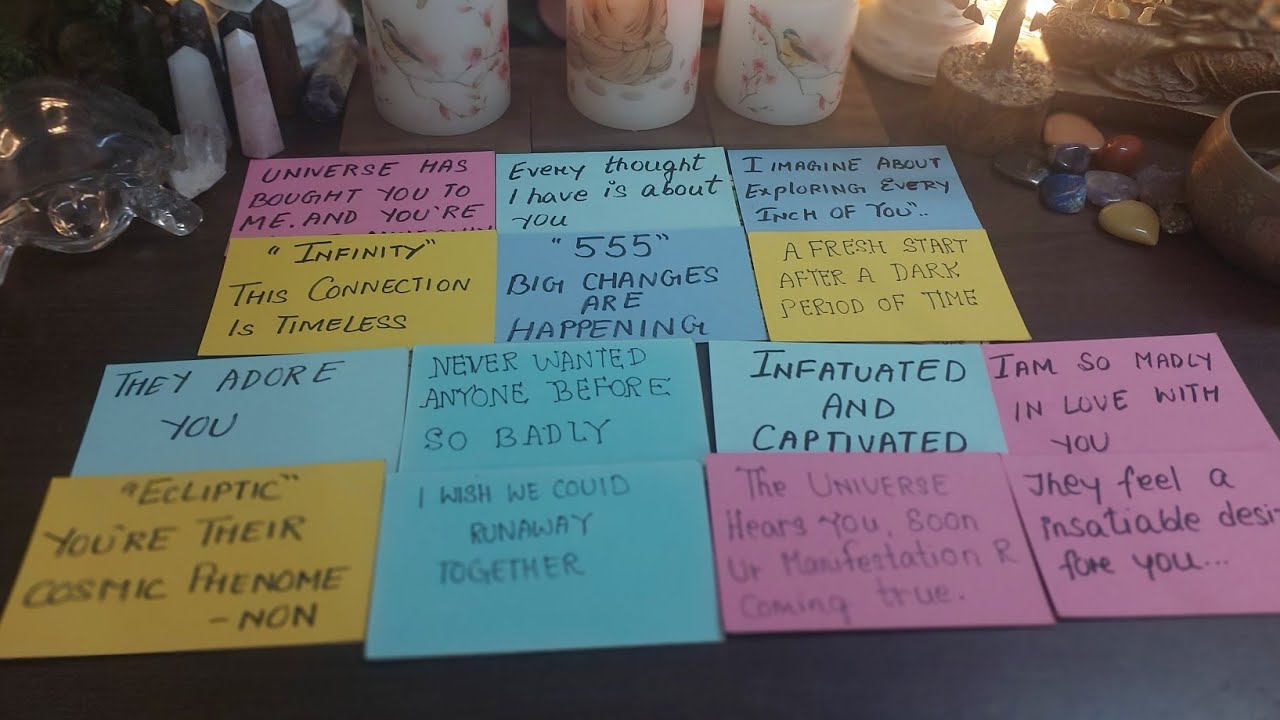 UNIVERSE HAS
BOUGHT YOU TO
ME. AND YOU'RE
Every thought
I have is about
you
I IMAGINE ABOUT
EXPLORING EVERY
INCH OF YOU"..
"INFINITY"
THIS CONNECTION
IS TIMELESS
"555"
BIG CHANGES
ARE
HAPPENING
A FRESH START
AFTER A DARK
PERIOD OF TIME
THEY ADORE
YOU
NEVER WANTED
ANYONE BEFORE
SO BADLY
INFATUATED
AND
CAPTIVATED
I AM SO MADLY
IN LOVE WITH
YOU
"ECLIPTIC"
YOU'RE THEIR
COSMIC PHENOME
-NON
I WISH WE COULD
RUNAWAY
TOGETHER
The UNIVERSE
Hears You, Soon
Ur Manifestation R
Coming true.
They feel a
insatiable desi
fore you...